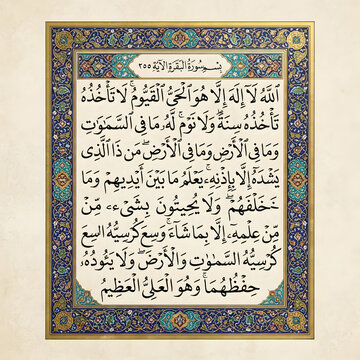 بسم سورة البقرة الآية ٢٥٥
اللَّهُ لَآ إِلَٰهَ إِلَّا هُوَ الْحَىُّ الْقَيُّومُ ۚ لَا تَأْخُذُهُ
تَأْخُذُهُ سِنَةٌ وَلَا نَوْمٌ ۚ لَهُ مَا فِى السَّمَٰوَٰتِ
وَمَا فِى الْأَرْضِ وَمَا فِى الْأَرْضِ ۗ مَن ذَا الَّذِى
يَشْدَهُ إِلَّا بِإِذْنِهِ ۚ يَعْلَمُ مَا بَيْنَ أَيْدِيهِمْ وَمَا
نَخَلْفَهُمْ ۖ وَلَا يُحِيتُونَ بِشَىْءٍ مِّنْ
مِّنْ عِلْمِهِ إِلَّا بِمَا شَاءَ ۚ وَسِعَ كُرْسِيُّهُ السِع
كُرْسِيُّهُ السَّمَٰوَٰتِ وَالْأَرْضَ ۖ وَلَا يَئُودُهُ
حِفْظُهُمَا ۚ وَهُوَ الْعَلِىُّ الْعَظِيمُ